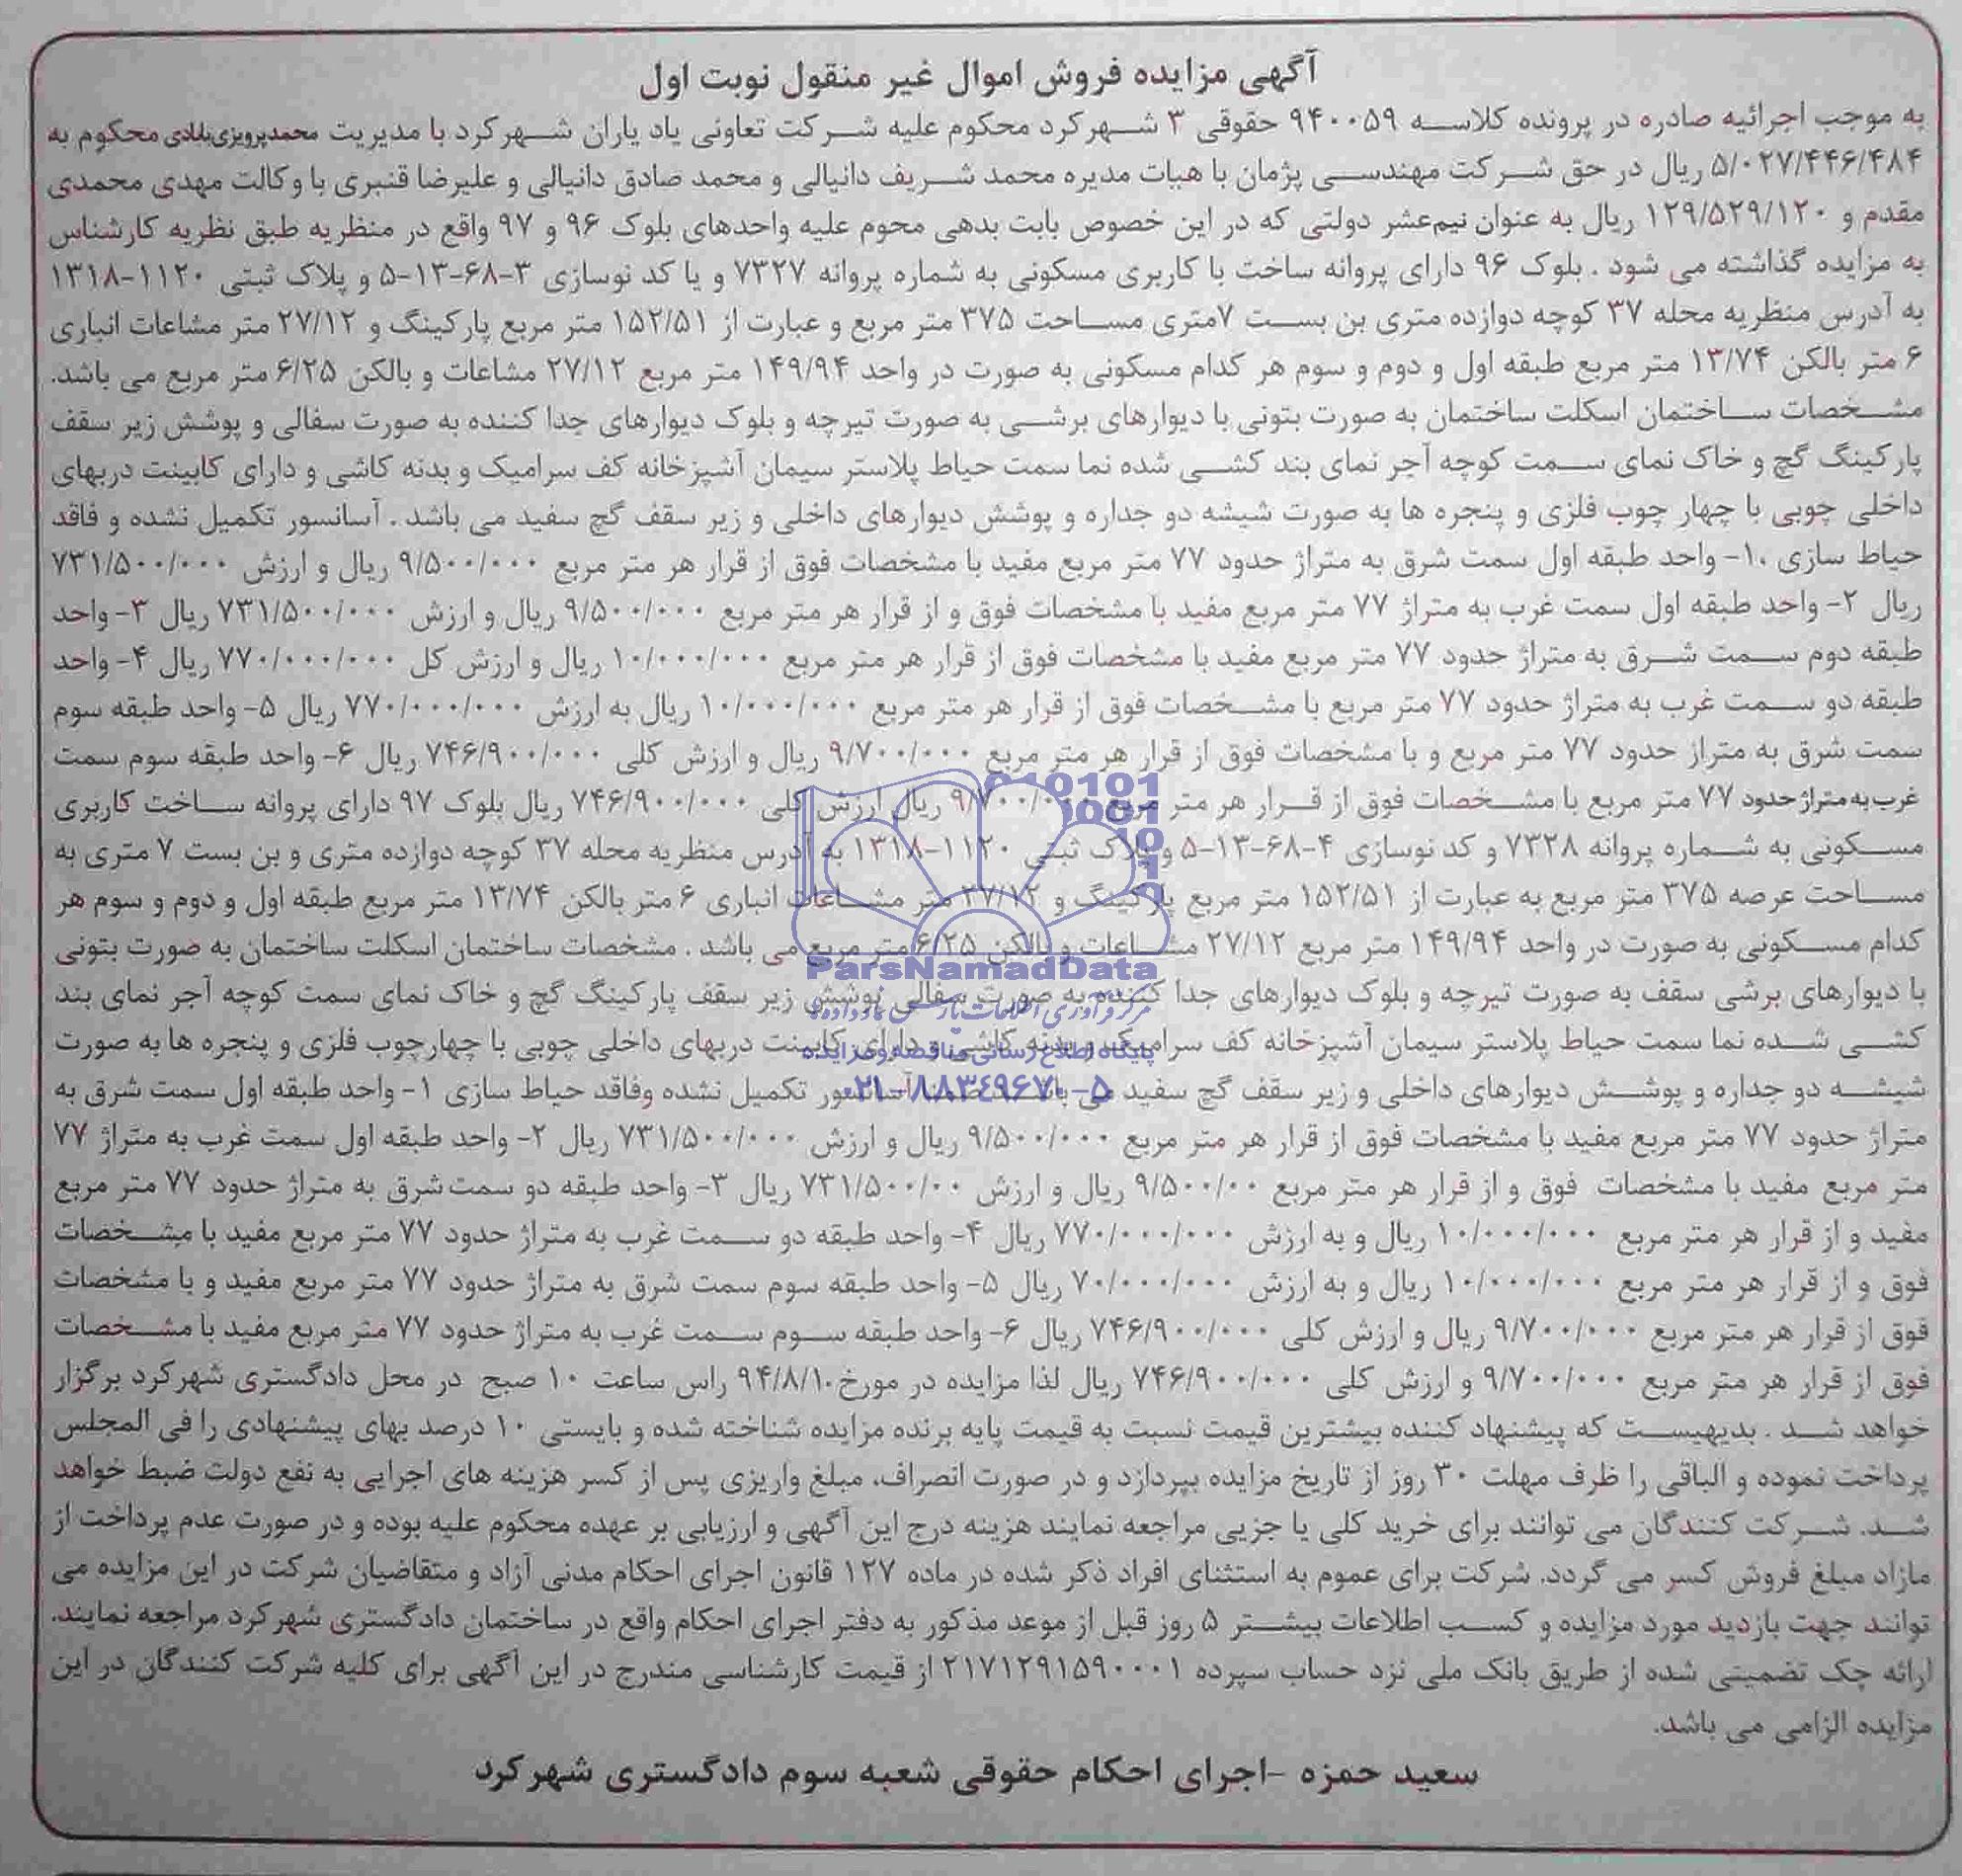 آگهی مزایده فروش اموال غیر منقول نوبت اول
به موجب اجرائیه صادره در پرونده کلاسه ۹۴۰۰۵۹ حقوقی ۳ شهرکرد محکوم علیه شرکت تعاونی یاد یاران شهرکرد با مدیریت محمدپرویزی‌بابادی محکوم به
۵/۰۲۷/۴۴۶/۴۸۴ ریال در حق شرکت مهندسی پژمان با هیات مدیره محمد شریف دانیالی و محمد صادق دانیالی و علیرضا قنبری با وکالت مهدی محمدی
مقدم و ۱۲۹/۵۲۹/۱۲۰ ریال به عنوان نیم‌عشر دولتی که در این خصوص بابت بدهی محوم علیه واحدهای بلوک ۹۶ و ۹۷ واقع در منظریه طبق نظریه کارشناس
به مزایده گذاشته می شود . بلوک ۹۶ دارای پروانه ساخت با کاربری مسکونی به شماره پروانه ۷۳۲۷ و یا کد نوسازی ۳-۶۸-۱۳-۵ و پلاک ثبتی ۱۱۲۰-۱۳۱۸
به آدرس منظریه محله ۳۷ کوچه دوازده متری بن بست ۷متری مساحت ۳۷۵ متر مربع و عبارت از ۱۵۲/۵۱ متر مربع پارکینگ و ۲۷/۱۲ متر مشاعات انباری
۶ متر بالکن ۱۳/۷۴ متر مربع طبقه اول و دوم و سوم هر کدام مسکونی به صورت در واحد ۱۴۹/۹۴ متر مربع ۲۷/۱۲ مشاعات و بالکن ۶/۲۵ متر مربع می باشد.
مشخصات ساختمان اسکلت ساختمان به صورت بتونی با دیوارهای برشی به صورت تیرچه و بلوک دیوارهای جدا کننده به صورت سفالی و پوشش زیر سقف
پارکینگ گچ و خاک نمای سمت کوچه آجر نمای بند کشی شده نما سمت حیاط پلاستر سیمان آشپزخانه کف سرامیک و بدنه کاشی و دارای کابینت دربهای
داخلی چوبی با چهار چوب فلزی و پنجره ها به صورت شیشه دو جداره و پوشش دیوارهای داخلی و زیر سقف گچ سفید می باشد . آسانسور تکمیل نشده و فاقد
حیاط سازی .۱- واحد طبقه اول سمت شرق به متراژ حدود ۷۷ متر مربع مفید با مشخصات فوق از قرار هر متر مربع ۹/۵۰۰/۰۰۰ ریال و ارزش ۷۳۱/۵۰۰/۰۰۰
ریال ۲- واحد طبقه اول سمت غرب به متراژ ۷۷ متر مربع مفید با مشخصات فوق و از قرار هر متر مربع ۹/۵۰۰/۰۰۰ ریال و ارزش ۷۳۱/۵۰۰/۰۰۰ ریال ۳- واحد
طبقه دوم سمت شرق به متراژ حدود ۷۷ متر مربع مفید با مشخصات فوق از قرار هر متر مربع ۱۰/۰۰۰/۰۰۰ ریال و ارزش کل ۷۷۰/۰۰۰/۰۰۰ ریال ۴- واحد
طبقه دو سمت غرب به متراژ حدود ۷۷ متر مربع با مشخصات فوق از قرار هر متر مربع ۱۰/۰۰۰/۰۰۰ ریال به ارزش ۷۷۰/۰۰۰/۰۰۰ ریال ۵- واحد طبقه سوم
سمت شرق به متراز حدود ۷۷ متر مربع و با مشخصات فوق از قرار هر متر مربع ۹/۷۰۰/۰۰۰ ریال و ارزش کلی ۷۴۶/۹۰۰/۰۰۰ ریال ۶- واحد طبقه سوم سمت
غرب به متراژ حدود ۷۷ متر مربع با مشخصات فوق از قرار هر متر مربع ۹/۷۰۰/۰۰۰ ریال ارزش کلی ۷۴۶/۹۰۰/۰۰۰ ریال بلوک ۹۷ دارای پروانه ساخت کاربری
مسکونی به شماره پروانه ۷۳۲۸ و کد نوسازی ۴-۶۸-۱۳-۵ و پلاک ثبتی ۱۱۲۰-۱۳۱۸ به آدرس منظریه محله ۳۷ کوچه دوازده متری و بن بست ۷ متری به
مساحت عرصه ۳۷۵ متر مربع به عبارت از ۱۵۲/۵۱ متر مربع پارکینگ و ۲۷/۱۲ متر مشاعات انباری ۶ متر بالکن ۱۳/۷۴ متر مربع طبقه اول و دوم و سوم هر
کدام مسکونی به صورت در واحد ۱۴۹/۹۴ متر مربع ۲۷/۱۲ مشاعات و بالکن ۶/۲۵ متر مربع می باشد . مشخصات ساختمان اسکلت ساختمان به صورت بتونی
با دیوارهای برشی سقف به صورت تیرچه و بلوک دیوارهای جدا کننده به صورت سفالی پوشش زیر سقف پارکینگ گچ و خاک نمای سمت کوچه آجر نمای بند
کشی شده نما سمت حیاط پلاستر سیمان آشپزخانه کف سرامیک و بدنه کاشی و دارای کابینت دربهای داخلی چوبی با چهارچوب فلزی و پنجره ها به صورت
شیشه دو جداره و پوشش دیوارهای داخلی و زیر سقف گچ سفید می باشد ضمنا آسانسور تکمیل نشده وفاقد حیاط سازی ۱- واحد طبقه اول سمت شرق به
متراژ حدود ۷۷ متر مربع مفید با مشخصات فوق از قرار هر متر مربع ۹/۵۰۰/۰۰۰ ریال و ارزش ۷۳۱/۵۰۰/۰۰۰ ریال ۲- واحد طبقه اول سمت غرب به متراژ ۷۷
متر مربع مفید با مشخصات فوق و از قرار هر متر مربع ۹/۵۰۰/۰۰ ریال و ارزش ۷۳۱/۵۰۰/۰۰ ریال ۳- واحد طبقه دو سمت شرق به متراژ حدود ۷۷ متر مربع
مفید و از قرار هر متر مربع ۱۰/۰۰۰/۰۰۰ ریال و به ارزش ۷۷۰/۰۰۰/۰۰۰ ریال ۴- واحد طبقه دو سمت غرب به متراژ حدود ۷۷ متر مربع مفید با مشخصات
فوق و از قرار هر متر مربع ۱۰/۰۰۰/۰۰۰ ریال و به ارزش ۷۰/۰۰۰/۰۰۰ ریال ۵- واحد طبقه سوم سمت شرق به متراژ حدود ۷۷ متر مربع مفید و با مشخصات
فوق از قرار هر متر مربع ۹/۷۰۰/۰۰۰ ریال و ارزش کلی ۷۴۶/۹۰۰/۰۰۰ ریال ۶- واحد طبقه سوم سمت غرب به متراژ حدود ۷۷ متر مربع مفید با مشخصات
فوق از قرار هر متر مربع ۹/۷۰۰/۰۰۰ و ارزش کلی ۷۴۶/۹۰۰/۰۰۰ ریال لذا مزایده در مورخ ۹۴/۸/۱۰ راس ساعت ۱۰ صبح در محل دادگستری شهرکرد برگزار
خواهد شد . بدیهیست که پیشنهاد کننده بیشترین قیمت نسبت به قیمت پایه برنده مزایده شناخته شده و بایستی ۱۰ درصد بهای پیشنهادی را فی المجلس
پرداخت نموده و الباقی را ظرف مهلت ۳۰ روز از تاریخ مزایده بپردازد و در صورت انصراف، مبلغ واریزی پس از کسر هزینه های اجرایی به نفع دولت ضبط خواهد
شد. شرکت کنندگان می توانند برای خرید کلی یا جزیی مراجعه نمایند هزینه درج این آگهی و ارزیابی بر عهده محکوم علیه بوده و در صورت عدم پرداخت از
مازاد مبلغ فروش کسر می گردد. شرکت برای عموم به استثنای افراد ذکر شده در ماده ۱۲۷ قانون اجرای احکام مدنی آزاد و متقاضیان شرکت در این مزایده می
توانند جهت بازدید مورد مزایده و کسب اطلاعات بیشتر ۵ روز قبل از موعد مذکور به دفتر اجرای احکام واقع در ساختمان دادگستری شهرکرد مراجعه نمایند.
ارائه چک تضمینی شده از طریق بانک ملی نزد حساب سپرده ۲۱۷۱۲۹۱۵۹۰۰۰۱ از قیمت کارشناسی مندرج در این آگهی برای کلیه شرکت کنندگان در این
مزایده الزامی می باشد.
سعید حمزه -اجرای احکام حقوقی شعبه سوم دادگستری شهرکرد
ParsNamadData
مرکز فرآوری اطلاعات پارس نماد داده ها
پایگاه اطلاع رسانی مناقصه و مزایده
۰۲۱-۸۸۳۴۹۶۷۰-۵